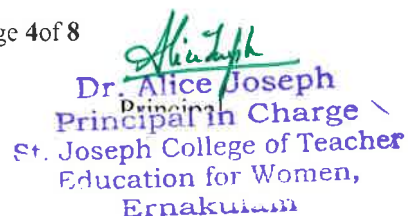 ge 4of 8
Alice Joseph
Dr. Alice Joseph
Principal
Principal in Charge
St. Joseph College of Teacher
Education for Women,
Ernakulam